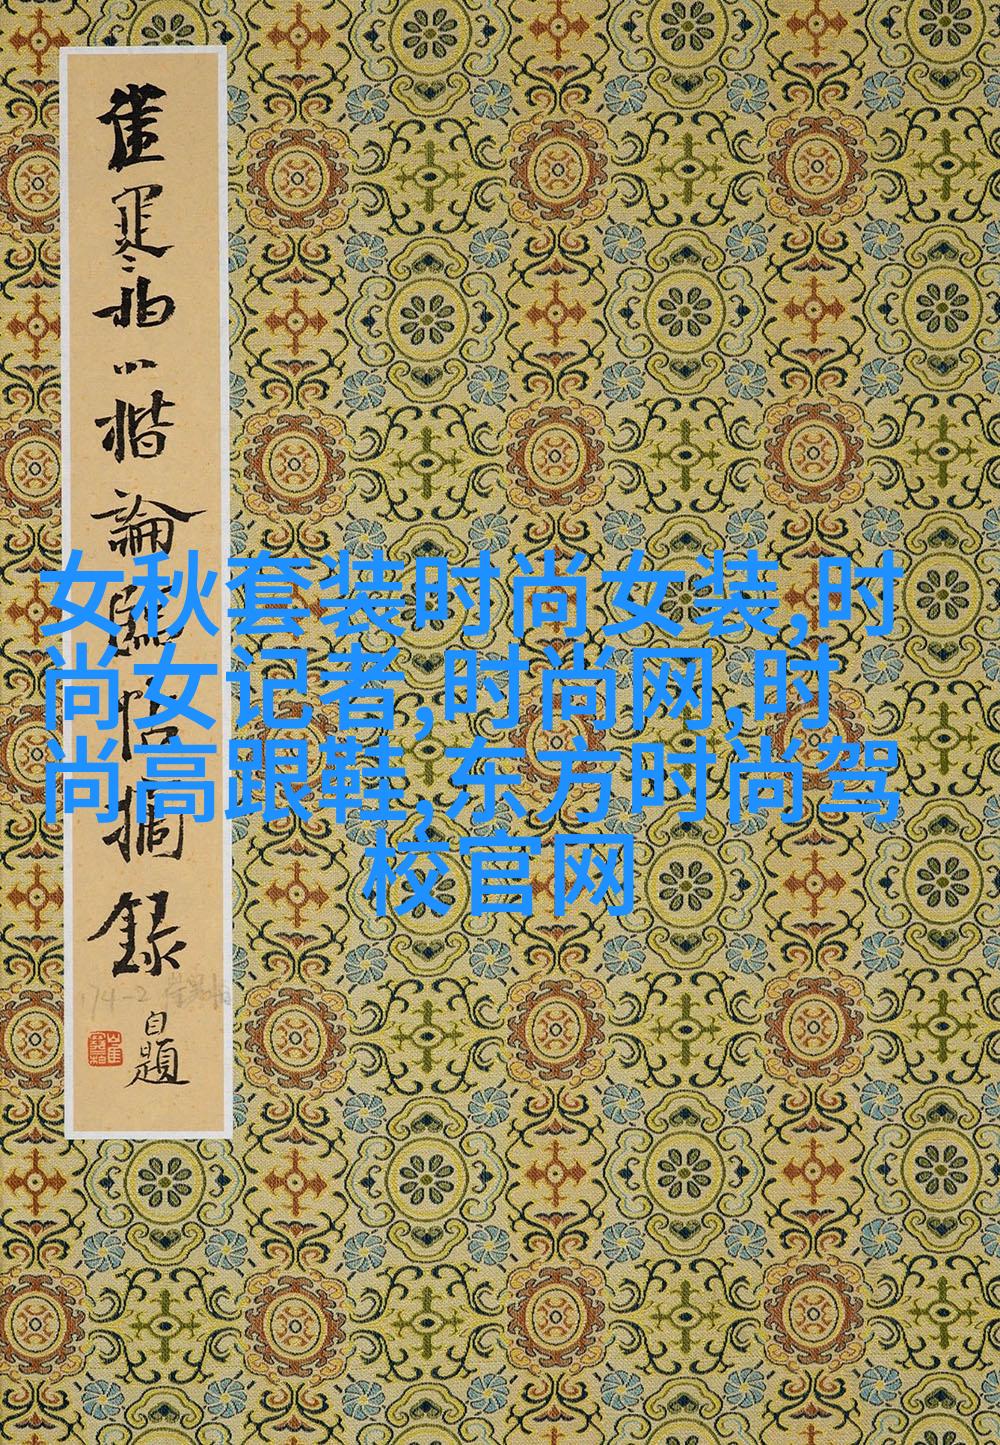 崔寒柏小楷論臨帖摘錄
174-2
自題
女秋套装时尚女装,时
尚女记者,时尚网,时
尚高跟鞋,东方时尚驾
校官网